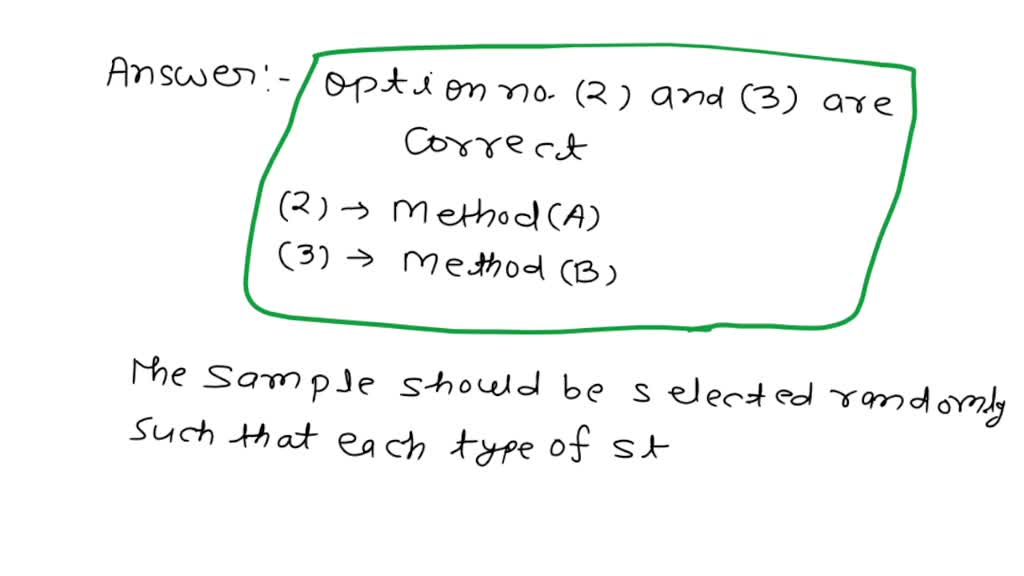 Answer:- option no. (2) and (3) are
correct
(2) → Method (A)
(3) → Method (B)
The sample should be selected randomly
such that each type of st